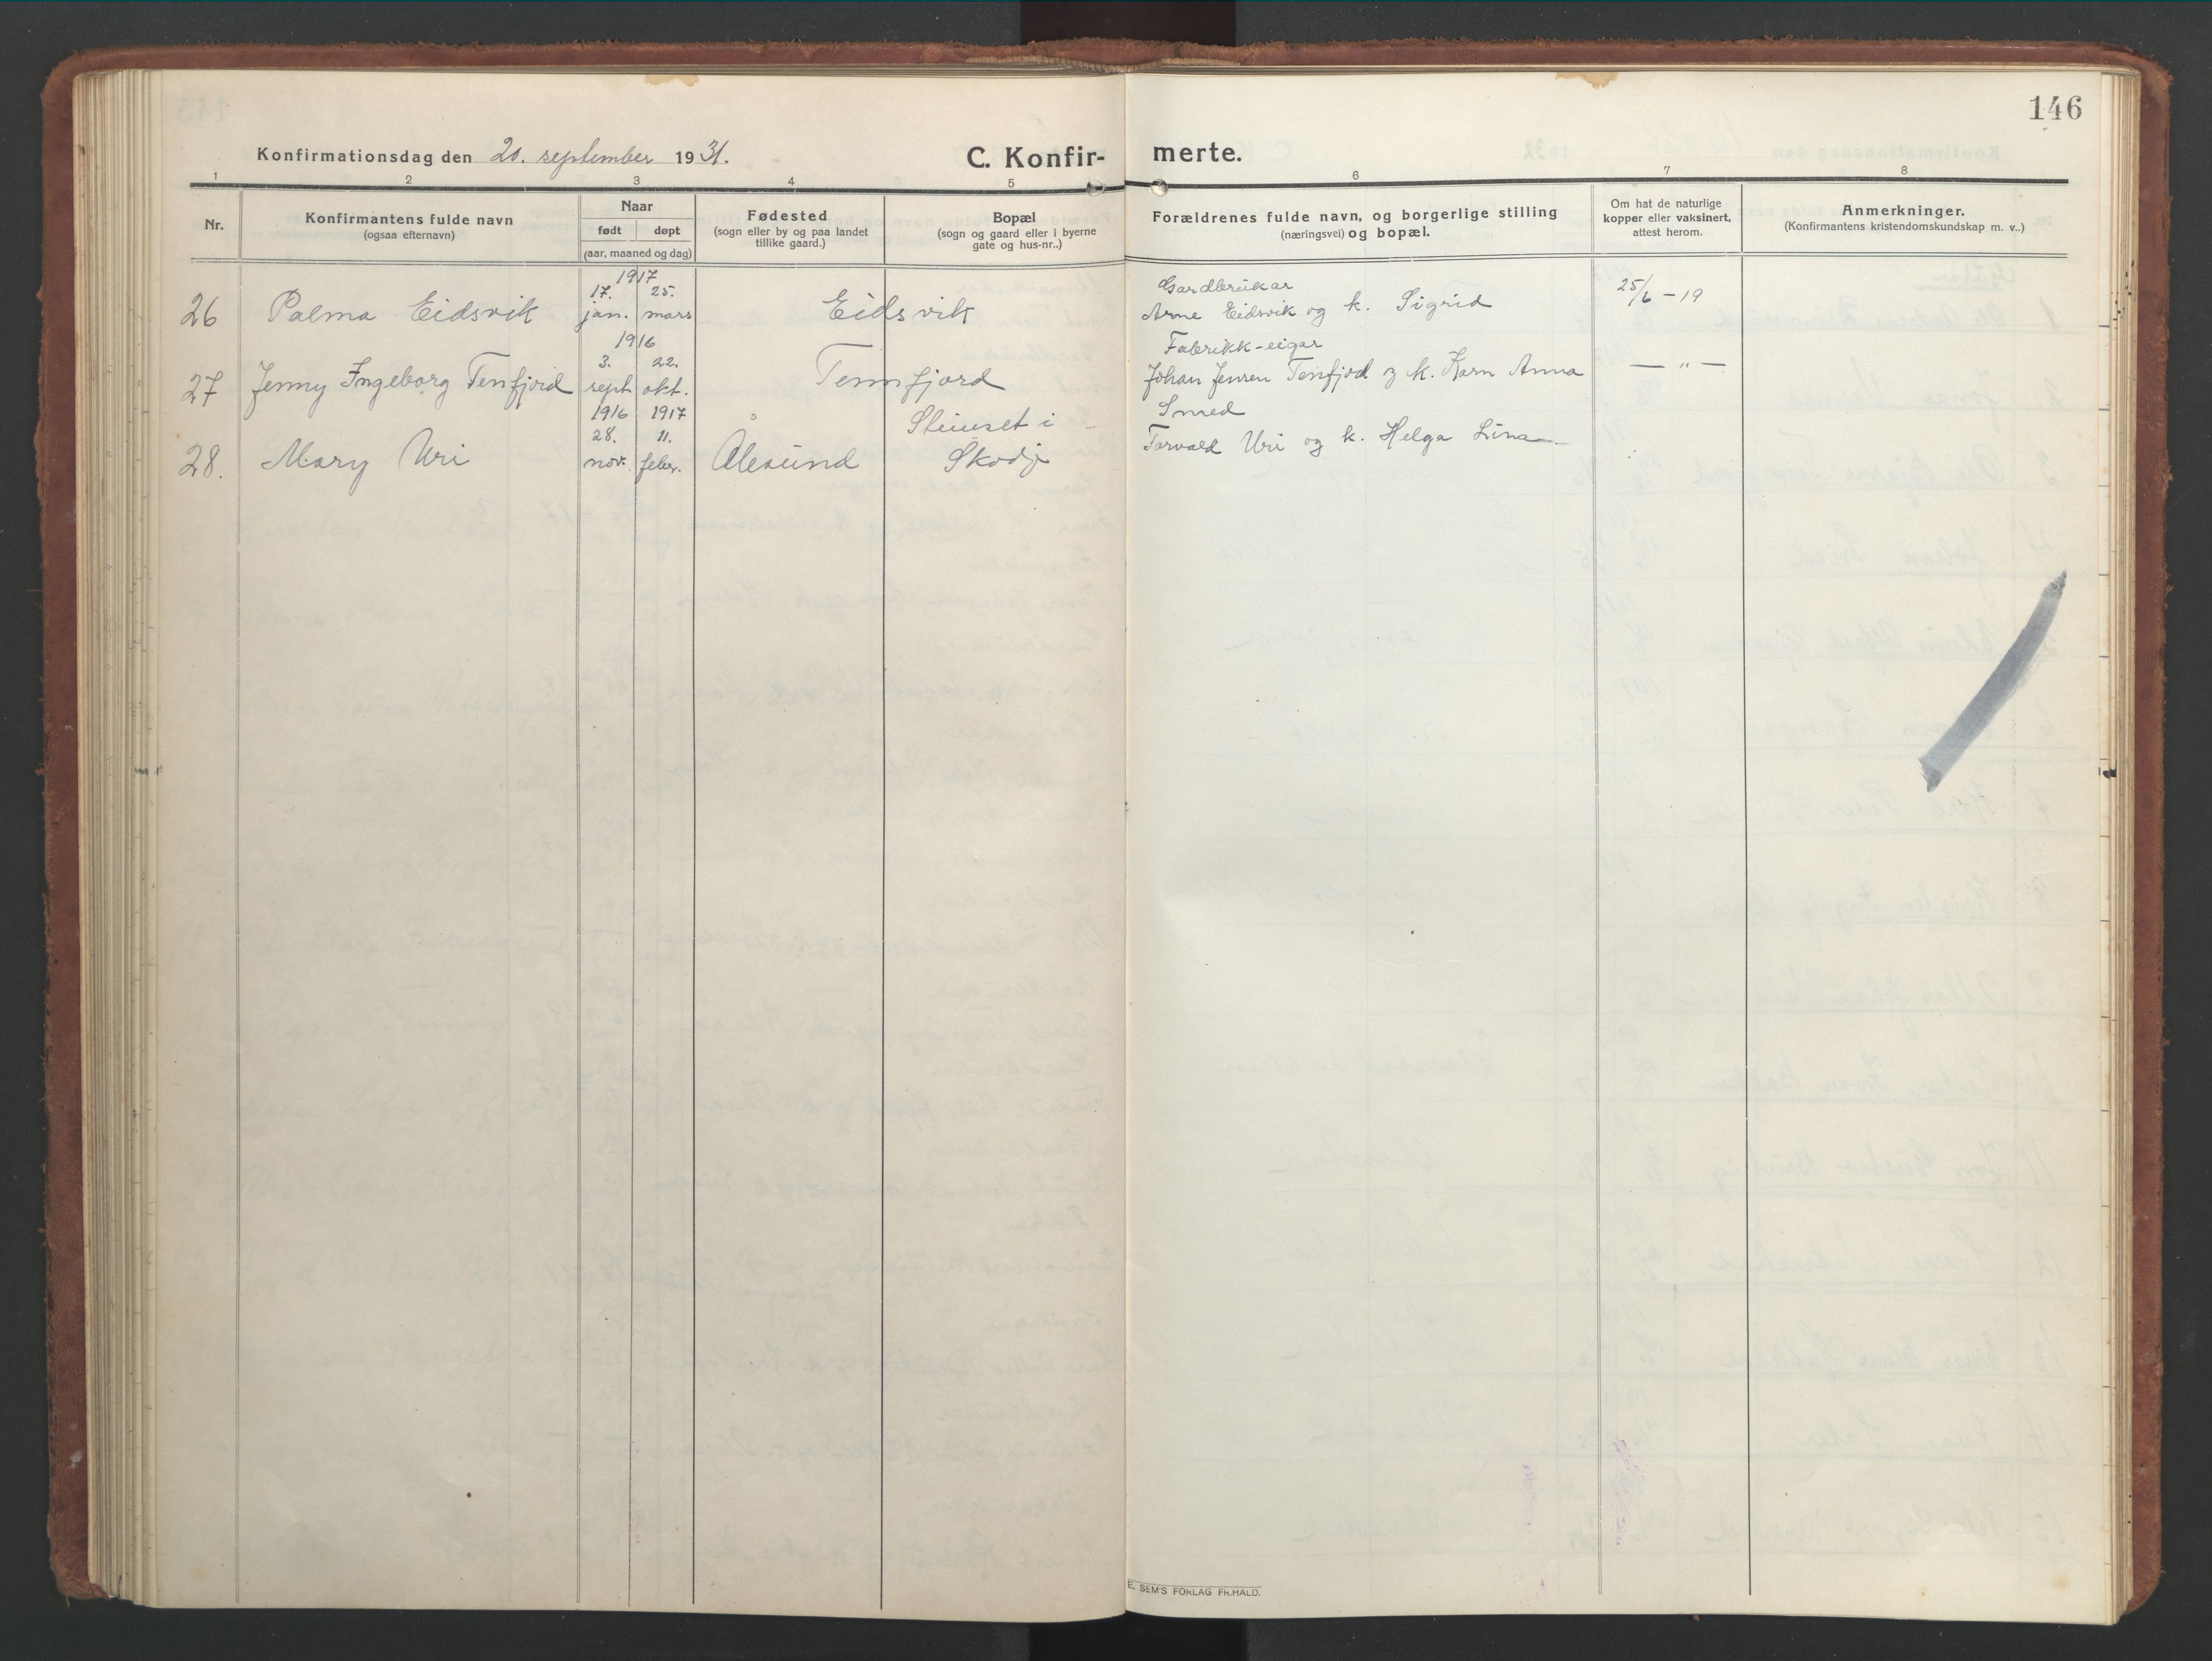 146
Konfirmationsdag den 20. september 1931.
C. Konfir- merte.
1 2 3 4 5 6 7 8
Nr.
Konfirmantens fulde navn
(ogsaa efternavn)
Naar
født døpt
(aar, maaned og dag)
Fødested
(sogn eller by og paa landet
tillike gaard.)
Bopæl
(sogn og gaard eller i byerne
gate og hus-nr..)
Forældrenes fulde navn, og borgerlige stilling
(næringsvei) og bopæl.
Om hat de naturlige
kopper eller vaksinert,
attest herom.
Anmerkninger.
(Konfirmantens kristendomskundskap m. v..)
1917
17. 25. Gardbrukar
26 Palma Eidsvik jan. mars Eidsvik Arne Eidsvik og k. Sigrid 25/6 - 19
1916
3. 22. Fabrikk-eigar
27 Jenny Ingeborg Tenfjord sept. okt. Tennfjord Johan Jensen Tenfjod og k. Karn Anna — " —
1916 1917 Smed
28. 11. Steinset i
28. Mary Uri nov. febr. Ålesund Skodje Torvald Uri og k. Helga Lina
E. SEM'S FORLAG FR.HALD.